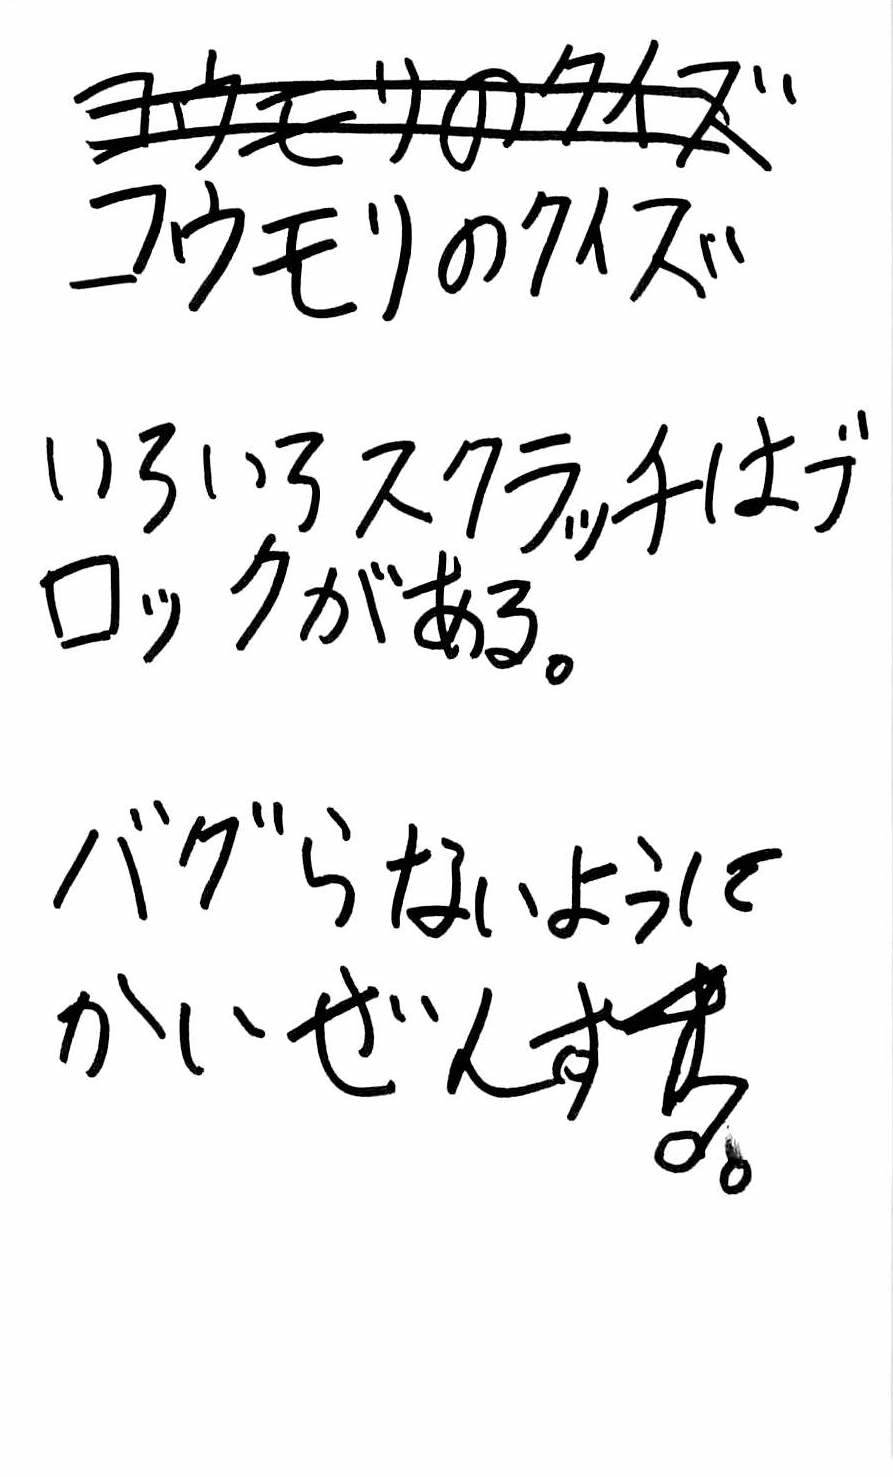 コウモリのクイズ
コウモリのクイズ
いろいろスクラッチはブ
ロックがある。
バグらないように
かいぜんする。